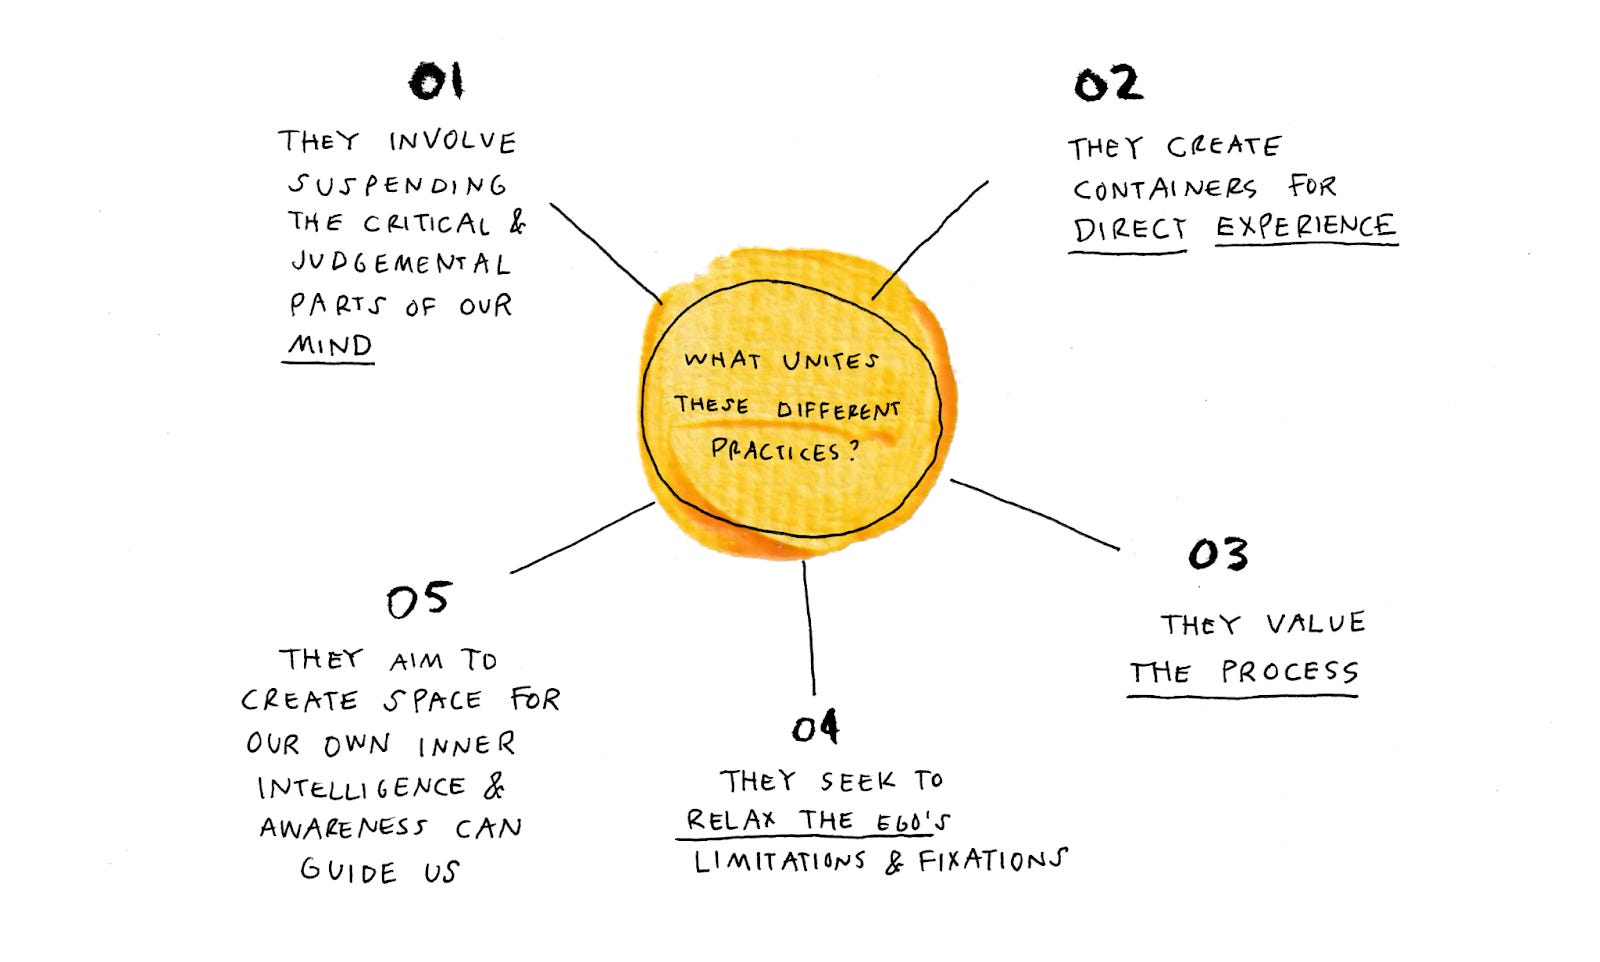 01
THEY INVOLVE
SUSPENDING
THE CRITICAL &
JUDGEMENTAL
PARTS OF OUR
MIND
02
THEY CREATE
CONTAINERS FOR
DIRECT EXPERIENCE
WHAT UNITES
THESE DIFFERENT
PRACTICES?
03
THEY VALUE
THE PROCESS
04
THEY SEEK TO
RELAX THE EGO'S
LIMITATIONS & FIXATIONS
05
THEY AIM TO
CREATE SPACE FOR
OUR OWN INNER
INTELLIGENCE &
AWARENESS CAN
GUIDE US